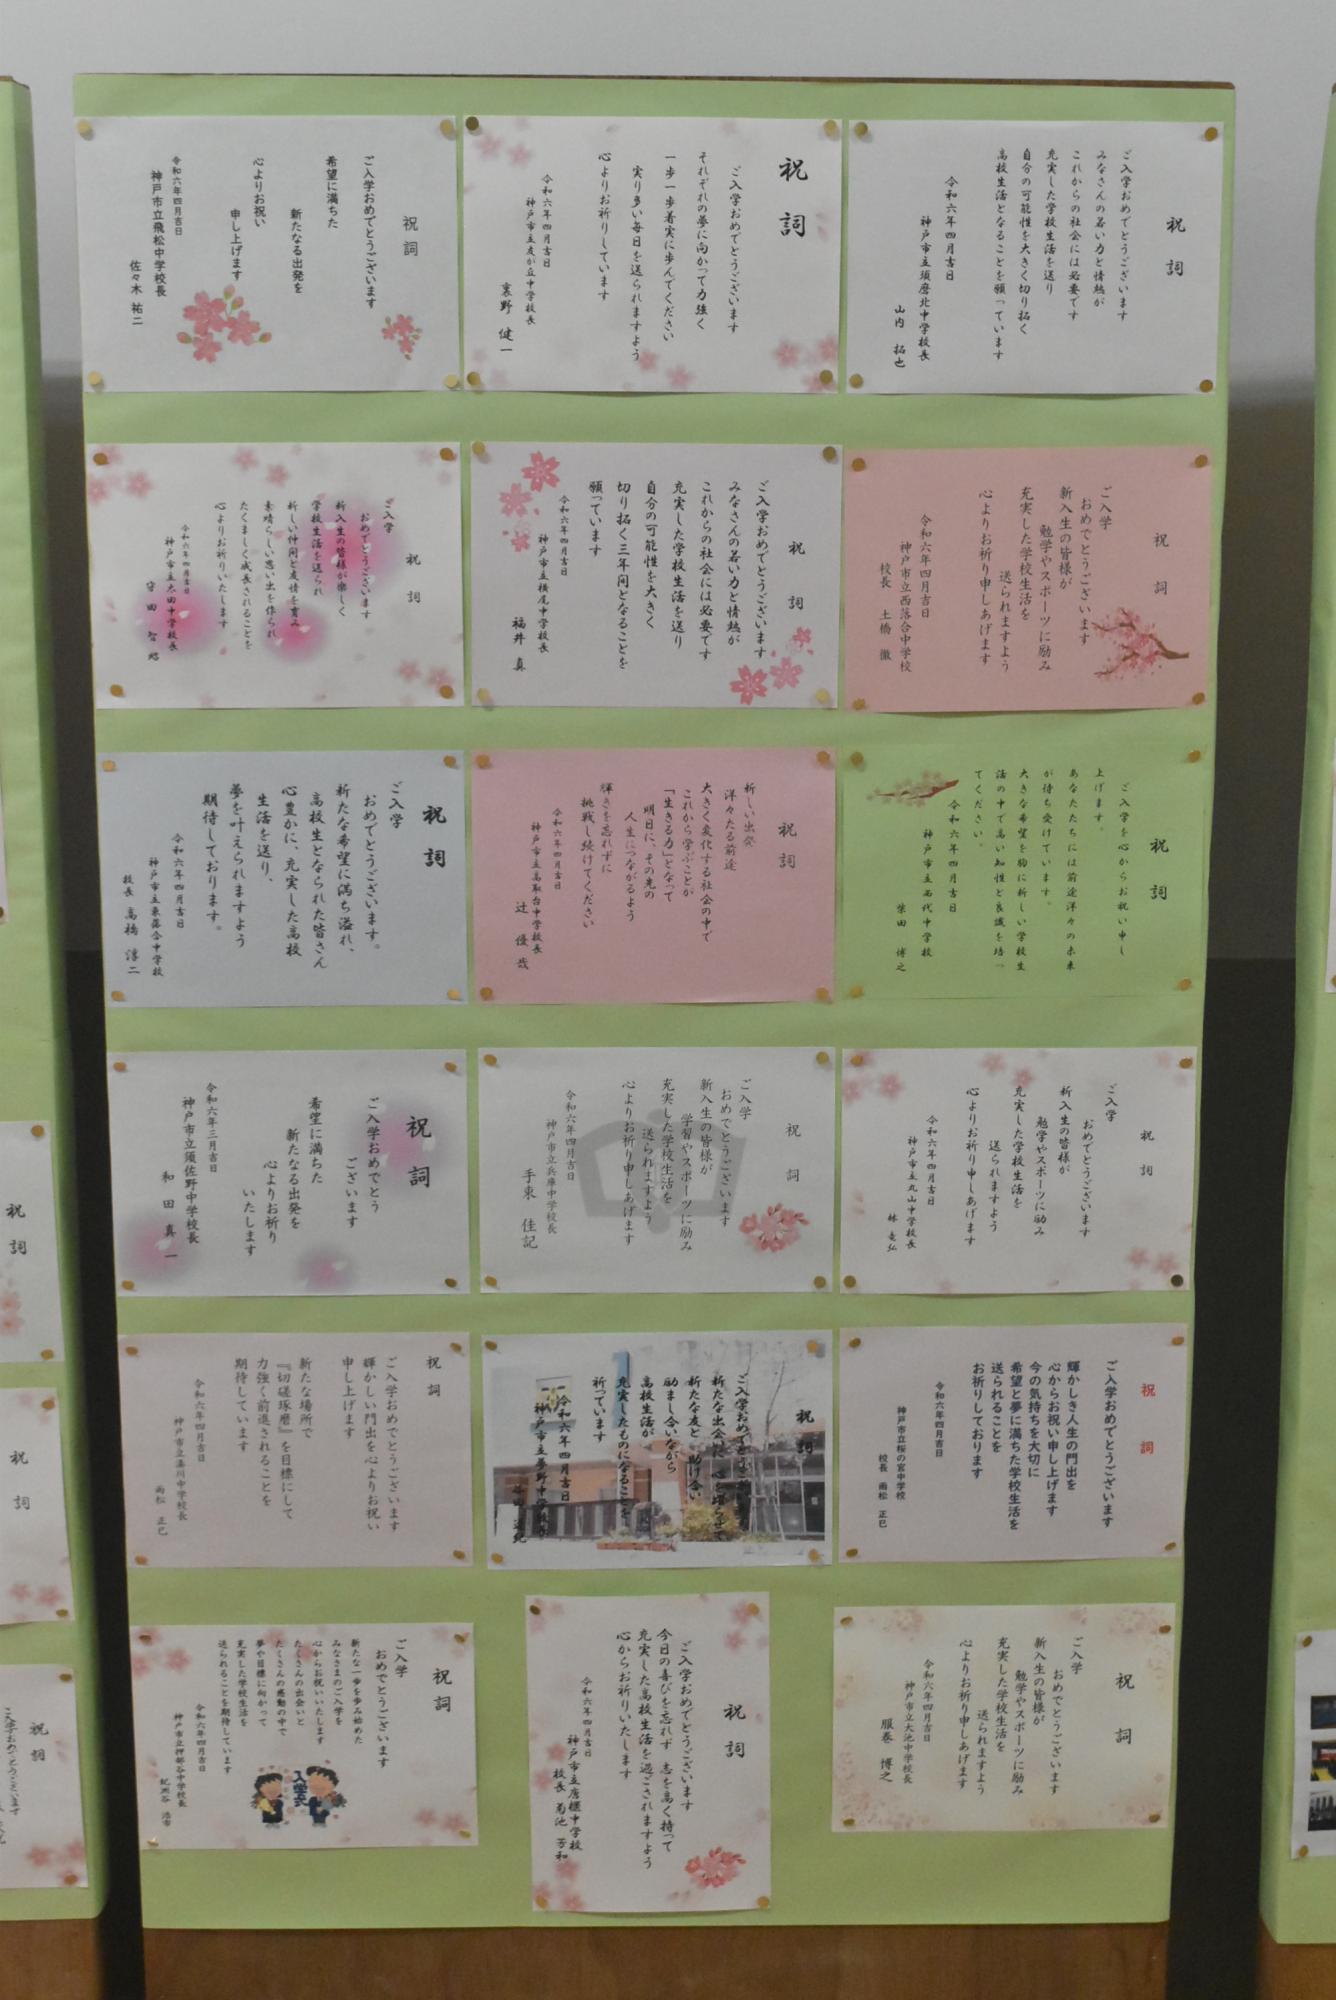 祝詞
ご入学おめでとうございます
みなさんの若い力と情熱が
これからの社会には必要です
充実した学校生活を送り
自分の可能性を大きく切り拓く
高校生活となることを願っています
令和六年四月吉日
神戸市立須磨北中学校長
山内 拓也
祝詞
ご入学おめでとうございます
それぞれの夢に向かって力強く
一歩一歩着実に歩んでください
実り多い毎日を送られますよう
心よりお祈りしています
令和六年四月吉日
神戸市立友が丘中学校長
裏野 健一
祝詞
ご入学おめでとうございます
希望に満ちた
新たなる出発を
心よりお祝い
申し上げます
令和六年四月吉日
神戸市立飛松中学校長
佐々木 祐二
祝詞
ご入学
おめでとうございます
新入生の皆様が
勉学やスポーツに励み
充実した学校生活を
送られますよう
心よりお祈り申しあげます
令和六年四月吉日
神戸市立西落合中学校
校長 土橋 徹
祝詞
ご入学おめでとうございます
みなさんの若い力と情熱が
これからの社会には必要です
充実した学校生活を送り
自分の可能性を大きく
切り拓く三年間となることを
願っています
令和六年四月吉日
神戸市立横尾中学校長
福井 真
祝詞
ご入学
おめでとうございます
新入生の皆様が楽しく
学校生活を送られ
新しい仲間と友情を育み
素晴らしい思い出を作られ
たくましく成長されることを
心よりお祈りいたします
令和六年四月吉日
神戸市立太田中学校長
守田 智昭
祝詞
ご入学を心からお祝い申し
上げます。
あなたたちには前途洋々の未来
が待ち受けています。
大きな希望を胸に新しい学校生
活の中で高い知性と良識を培っ
てください。
令和六年四月吉日
神戸市立西代中学校
柴田 博之
祝詞
新しい出発
洋々たる前途
大きく変化する社会の中で
これから学ぶことが
「生きる力」となって
明日に、その先の
人生につながるよう
輝きを忘れずに
挑戦し続けてください
令和六年四月吉日
神戸市立高取台中学校長
辻 優哉
祝詞
ご入学
おめでとうございます。
新たな希望に満ち溢れ、
高校生となられた皆さん
心豊かに、充実した高校
生活を送り、
夢を叶えられますよう
期待しております。
令和六年四月吉日
神戸市立東落合中学校
校長 高橋 淳二
祝詞
ご入学
おめでとうございます
新入生の皆様が
勉学やスポーツに励み
充実した学校生活を
送られますよう
心よりお祈り申しあげます
令和六年四月吉日
神戸市立丸山中学校長
林 竜弘
祝詞
ご入学
おめでとうございます
新入生の皆様が
学習やスポーツに励み
充実した学校生活を
送られますよう
心よりお祈り申しあげます
令和六年四月吉日
神戸市立兵庫中学校長
手束 佳記
祝詞
ご入学おめでとう
ございます
希望に満ちた
新たなる出発を
心よりお祈り
いたします
令和六年三月吉日
神戸市立須佐野中学校長
和田 真一
祝詞
ご入学おめでとうございます
輝かしき人生の門出を
心からお祝い申し上げます
今の気持ちを大切に
希望と夢に満ちた学校生活を
送られることを
お祈りしております
令和六年四月吉日
神戸市立桜の宮中学校
校長 南松 正巳
祝詞
ご入学おめでとうございます
新たな出会いに心を
新たな友と 助け合い
励まし合いながら
高校生活が
充実したものになることを
祈っています
令和六年四月吉日
神戸市立夢野中学校長
祝詞
ご入学おめでとうございます
輝かしい門出を心よりお祝い
申し上げます
新たな場所で
『切磋琢磨』を目標にして
力強く前進されることを
期待しています
令和六年四月吉日
神戸市立湊川中学校長
南松 正巳
祝詞
ご入学
おめでとうございます
新入生の皆様が
勉学やスポーツに励み
充実した学校生活を
送られますよう
心よりお祈り申しあげます
令和六年四月吉日
神戸市立大池中学校長
服巻 博之
祝詞
ご入学おめでとうございます
今日の喜びを忘れず 志を高く持って
充実した高校生活を過ごされますよう
心からお祈りいたします
令和六年四月吉日
神戸市立唐櫃中学校
校長 菊池 芳和
祝詞
ご入学
おめでとうございます
新たな一歩を歩み始めた
みなさまのご入学を
心からお祝いいたします
たくさんの出会いと
たくさんの感動の中で
夢や目標に向かって
充実した学校生活を
送られることを期待しています
令和六年四月吉日
神戸市立押部谷中学校長
紀洲谷 浩市
入学式
祝詞
祝詞
祝詞
ご入学おめでとうございます